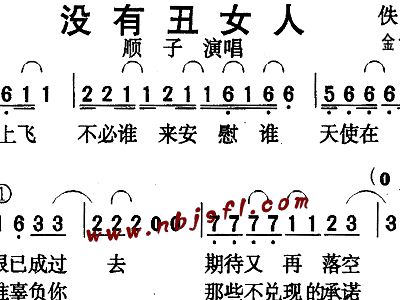 没有丑女人
佚
顺子 演唱
金
6 1 1 2 2 1 1 2 1 1 6 1 6 6 5 6 6 6
上飞 不必谁 来安 慰 谁 天使在
(0
1 6 3 3 2 2 2 0 0 7 7 7 7 1 1 2 3 3
www.hbjsfl.com
已成过 去 期待又 再 落空
辜负你 那些不兑现的承诺